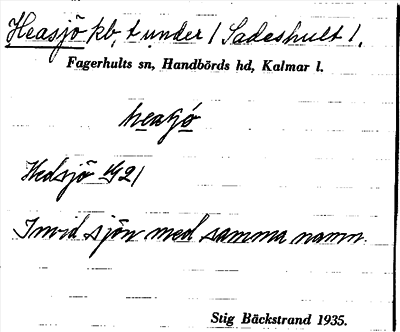 Heasjö kb, t under / Sadeshult /.
Fagerhults sn, Handbörds hd, Kalmar l.
heasjö
Hedsjö 1921
Invid sjön med samma namn.
Stig Bäckstrand 1935.